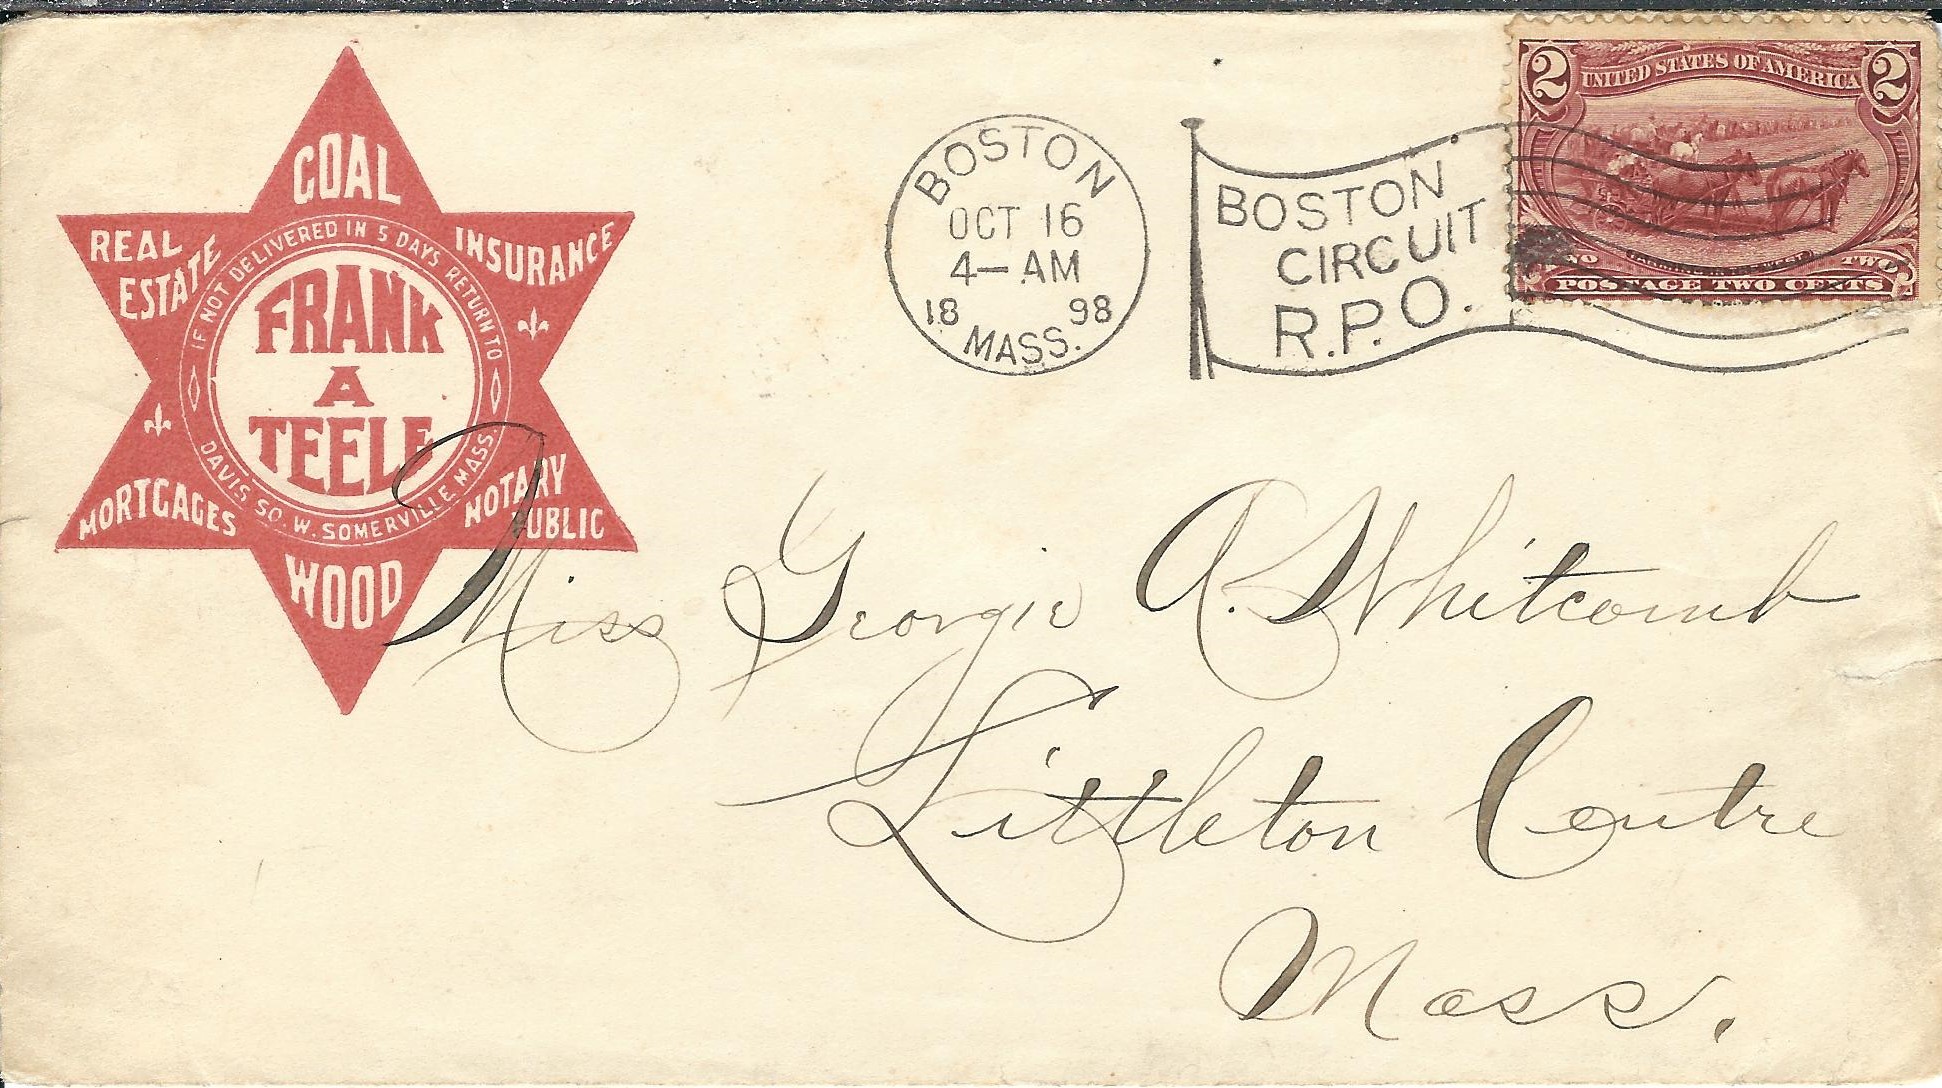 COAL
REAL ESTATE
INSURANCE
IF NOT DELIVERED IN 5 DAYS RETURN TO
FRANK
A
TEELE
DAVIS SQ. W. SOMERVILLE MASS.
MORTGAGES
NOTARY PUBLIC
WOOD
BOSTON
OCT 16
4—AM
18 98
MASS.
BOSTON
CIRCUIT
R.P.O.
2 UNITED STATES OF AMERICA 2
TWO
POSTAGE TWO CENTS
Miss Georgie A. Whitcomb
Littleton Centre
Mass.